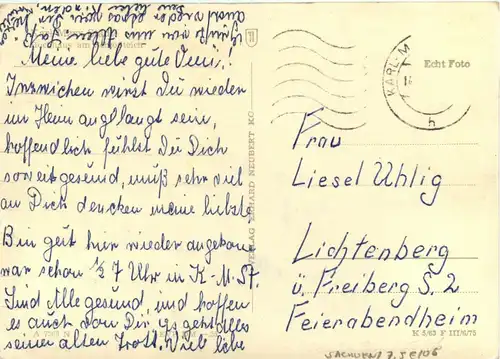 Meine liebe gute Omi!
Inzwischen wirst Du wieder
im Heim anglangt sein,
hoffendlich fühlst Du Dich
soweit gesund, muß sehr viel
an Dich dencken meine liebste
Bin gut hier wieder angekom
war schon ½ 7 Uhr in K-M.St.
Sind Alle gesund, und hoffen
es auch von Dir. Es geht alles
seiner alten Trott. Viel liebe
VERLAG ERHARD NEUBERT KG
KARL-M
h
Echt Foto
Frau
Liesel Uhlig
Lichtenberg
ü. Freiberg S. 2
Feierabendheim
K 5/63 F III/6/75